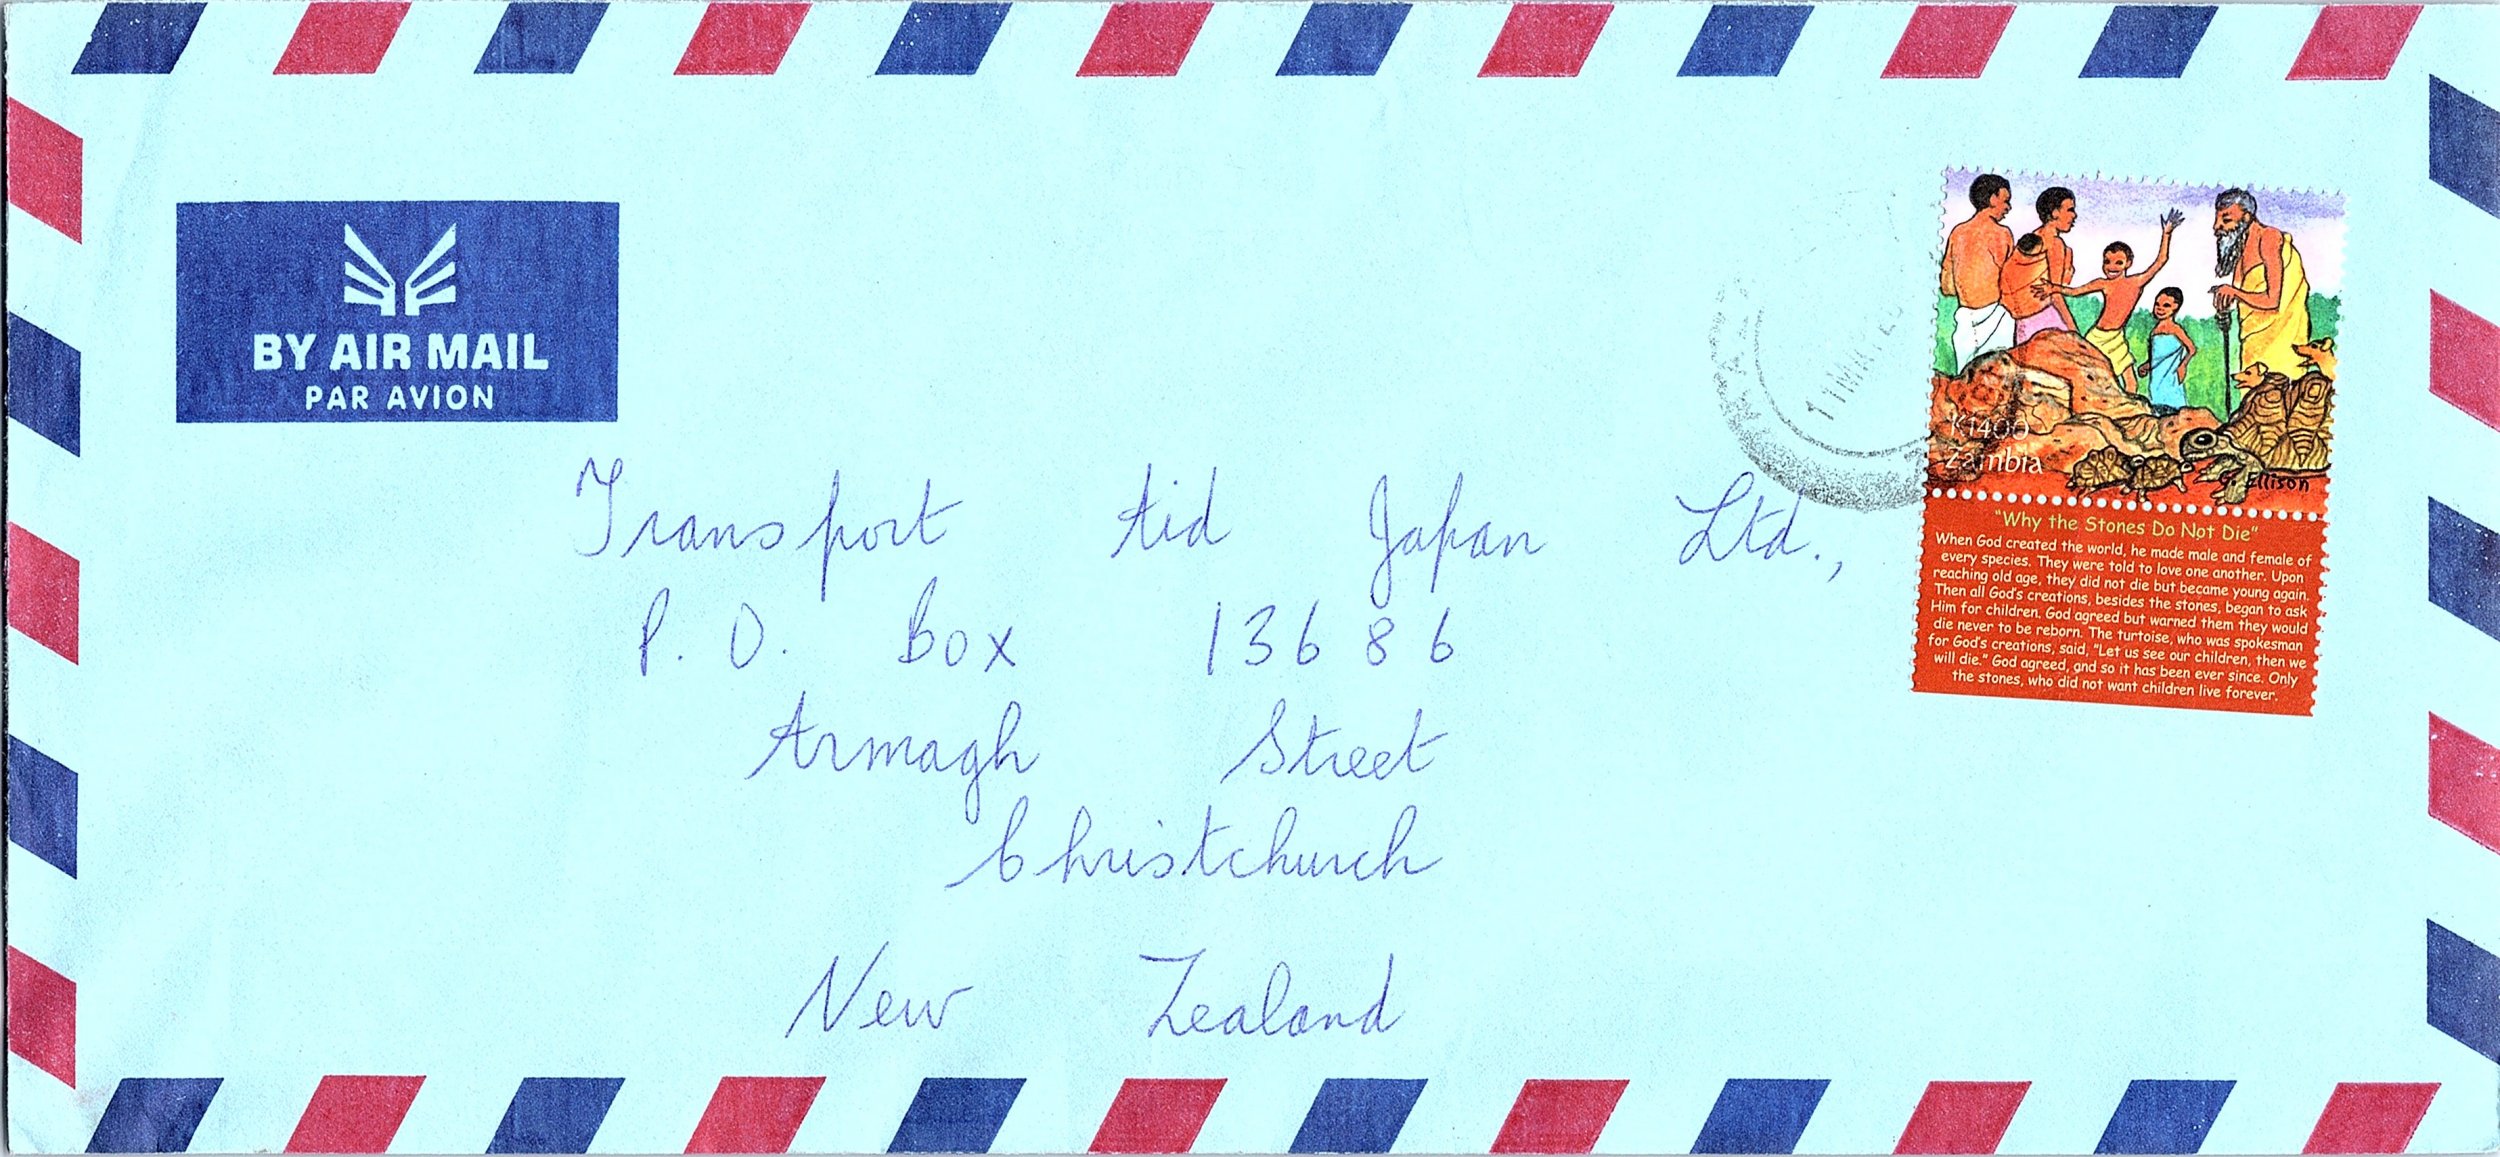 BY AIR MAIL
PAR AVION
K1400
Zambia
G. Ellison
"Why the Stones Do Not Die"
When God created the world, he made male and female of
every species. They were told to love one another. Upon
reaching old age, they did not die but became young again.
Then all God's creations, besides the stones, began to ask
Him for children. God agreed but warned them they would
die never to be reborn. The turtoise, who was spokesman
for God's creations, said, "Let us see our children, then we
will die." God agreed, and so it has been ever since. Only
the stones, who did not want children live forever.
Transport Aid Japan Ltd.,
P. O. Box 13686
Armagh Street
Christchurch
New Zealand